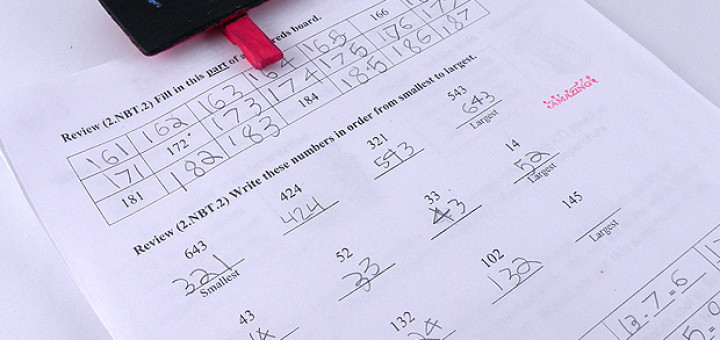 Review (2.NBT.2) Fill in this part of reds board.
161 162 163 164 165 166
171 172 173 174 175 176 177
181 182 183 184 185 186 187
AMAZING
Review (2.NBT.2) Write these numbers in order from smallest to largest.
643 424 321 543
321 424 543 643
Smallest Largest
43 52 33 14
14 33 43 52
Largest
132 102 145
132
Largest
13-7=6